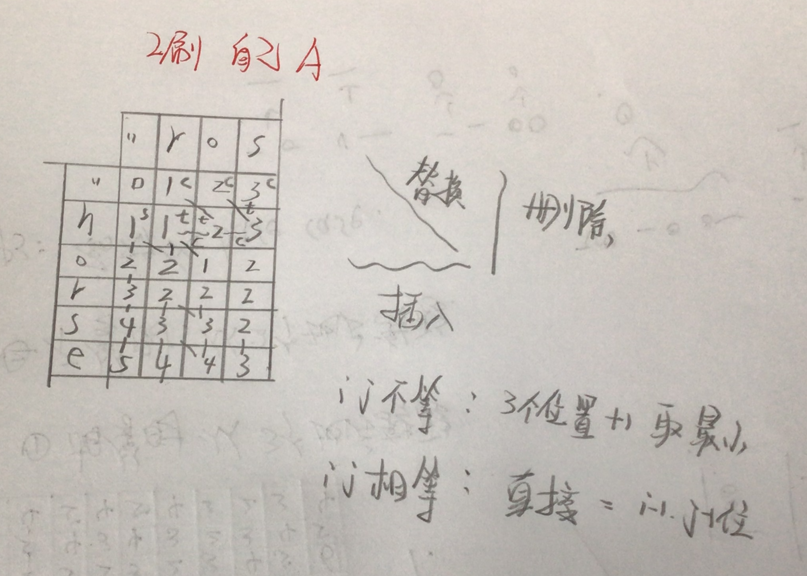 2刷 自己A
" r o s
" 0 1c 2c 3c
h 1s 1t 2 3
o 2 2 1 2
r 3 2 2 2
s 4 3 3 2
e 5 4 4 3
替换
删除
插入
i j 不等: 3个位置+1 取最小
i j 相等: 直接 = i-1. j-1位